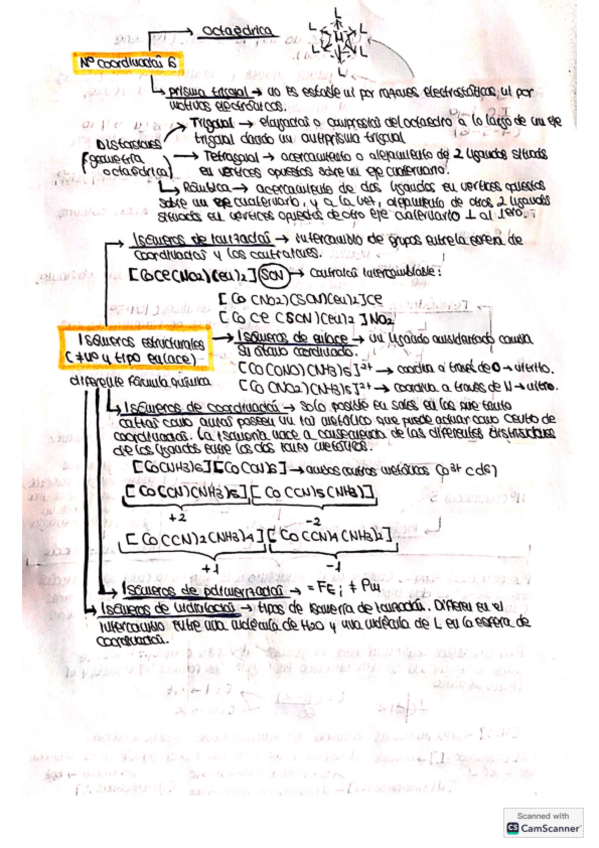 octaédrica
L L L L L L M
Nº coordinación 6
prisma trigonal → no es estable ni por razones electrostáticas, ni por
motivos electrónicos.
Trigonal → elongación o compresión del octaedro a lo largo de un eje
trigonal dando un antiprisma trigonal
Distorsiones
(geometría
octaédrica)
Tetragonal → acercamiento o alejamiento de 2 ligandos situados
en vértices opuestos sobre un eje cuaternario.
Rómbica → acercamiento de dos ligandos en vértices opuestos
sobre un eje cuaternario, y a la vez, alejamiento de otros 2 ligandos
situados en vértices opuestos de otro eje cuaternario ⊥ al 1ero.
Isómeros de ionización → intercambio de grupos entre la esfera de
coordinación y los contraiones.
[CoCl(NO2)(en)2](SCN) → contraión intercambiable:
[Co(NO2)(SCN)(en)2]Cl
[CoCl(SCN)(en)2]NO2
Isómeros estructurales
(≠ nº y tipo enlace)
diferente fórmula química
Isómeros de enlace → un ligando ambidentado cambia
su átomo coordinado.
[Co(ONO)(NH3)5]2+ → coordina a través de O → nitrito.
[Co(NO2)(NH3)5]2+ → coordina a través de N → nitro.
Isómeros de coordinación → Solo posible en sales en las que tanto
catión como anión poseen un ion metálico que puede actuar como centro de
coordinación. La isomería nace a consecuencia de las diferentes distribuciones
de los ligandos entre los dos iones metálicos.
[Co(NH3)6][Co(CN)6] → ambos centros metálicos Co3+ (d6)
[Co(CN)(NH3)5][Co(CN)5(NH3)]
+2 -2
[Co(CN)2(NH3)4][Co(CN)4(NH3)2]
+1 -1
Isómeros de polimerización → = FE; ≠ Pm
Isómeros de hidratación → tipos de isomería de ionización. Difieren en el
intercambio entre una molécula de H2O y una molécula de L en la esfera de
coordinación.
Scanned with
CS CamScanner